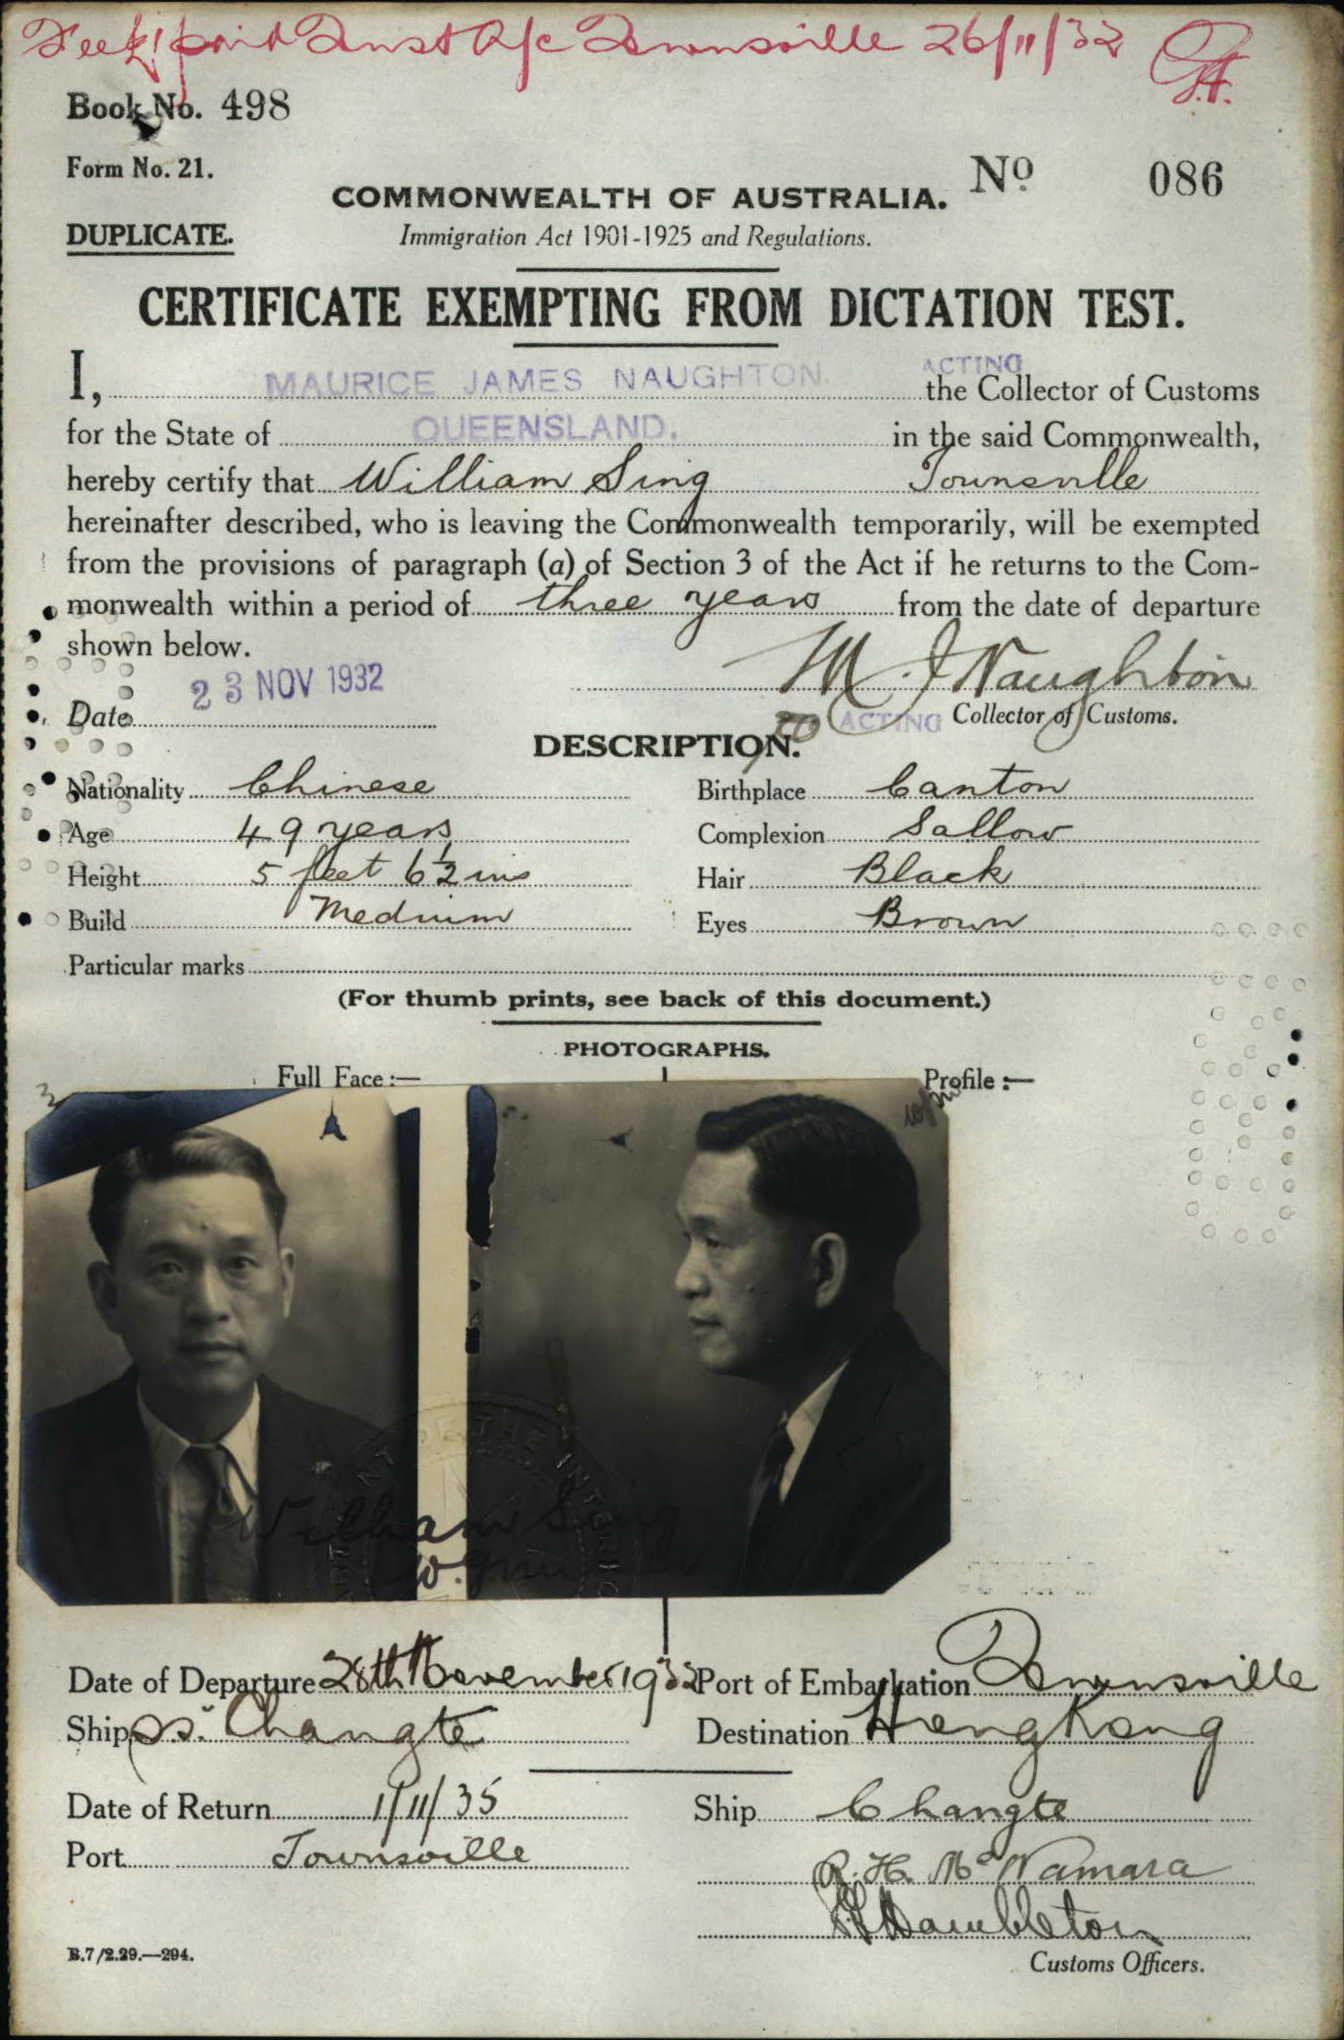 Fee £1 paid Trust A/c Townsville 26/11/32
Book No. 498
Form No. 21.
No 086
COMMONWEALTH OF AUSTRALIA.
DUPLICATE.
Immigration Act 1901-1925 and Regulations.
CERTIFICATE EXEMPTING FROM DICTATION TEST.
I, MAURICE JAMES NAUGHTON. ACTING the Collector of Customs
for the State of QUEENSLAND. in the said Commonwealth,
hereby certify that William Sing Townsville
hereinafter described, who is leaving the Commonwealth temporarily, will be exempted
from the provisions of paragraph (a) of Section 3 of the Act if he returns to the Com-
monwealth within a period of three years from the date of departure
shown below.
23 NOV 1932
M. J Naughton
Date
ACTING Collector of Customs.
DESCRIPTION.
Nationality Chinese Birthplace Canton
Age 49 years Complexion Sallow
Height 5 feet 6½ ins Hair Black
Build Medium Eyes Brown
Particular marks
(For thumb prints, see back of this document.)
PHOTOGRAPHS.
Full Face:— Profile:—
William Sing
Date of Departure 28th November 1932 Port of Embarkation Townsville
Ship ss. Changte Destination Hong Kong
Date of Return 1/11/35 Ship Changte
Port Townsville
R. H. McNamara
Hambleton
Customs Officers.
B.7/2.29.—294.